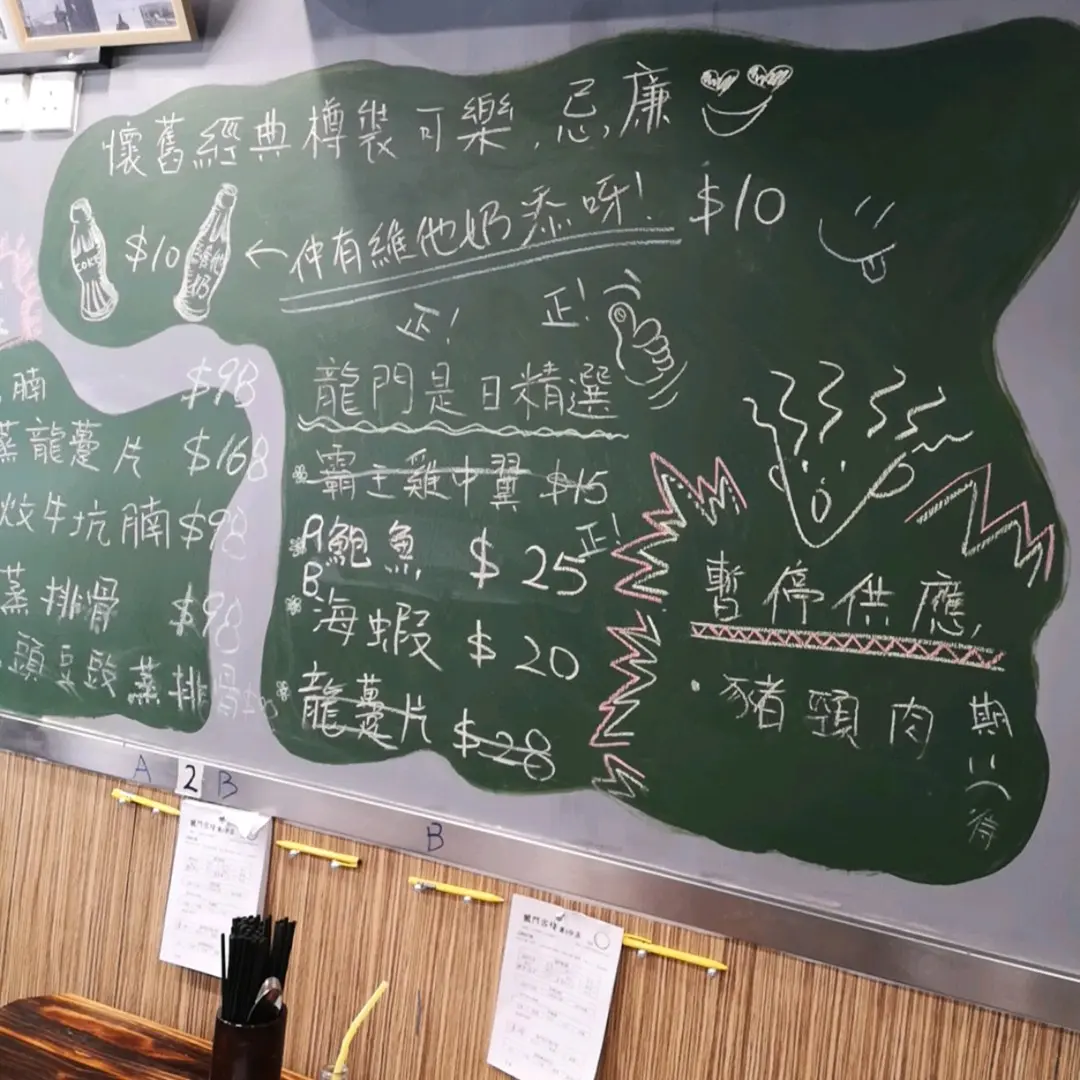 懷舊經典樽裝可樂,忌,廉
COKE $10 維他奶 ← 仲有維他奶添呀! $10
正! 正!
龍門是日精選
霸王雞中翼 $15
A 鮑魚 $25 正!
B 海蝦 $20
龍躉片 $28
腩 $98
蒸龍躉片 $168
炆牛坑腩 $98
蒸排骨 $98
頭豆豉蒸排骨
暫停供應,
· 豬頸肉 期待
A 2 B
B